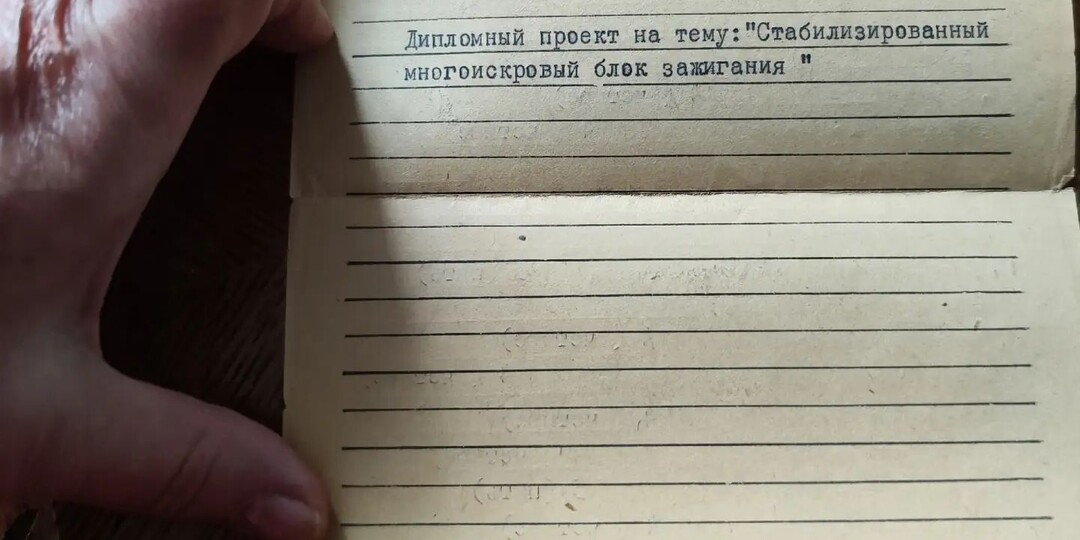 Дипломный проект на тему:"Стабилизированный
многоискровый блок зажигания "